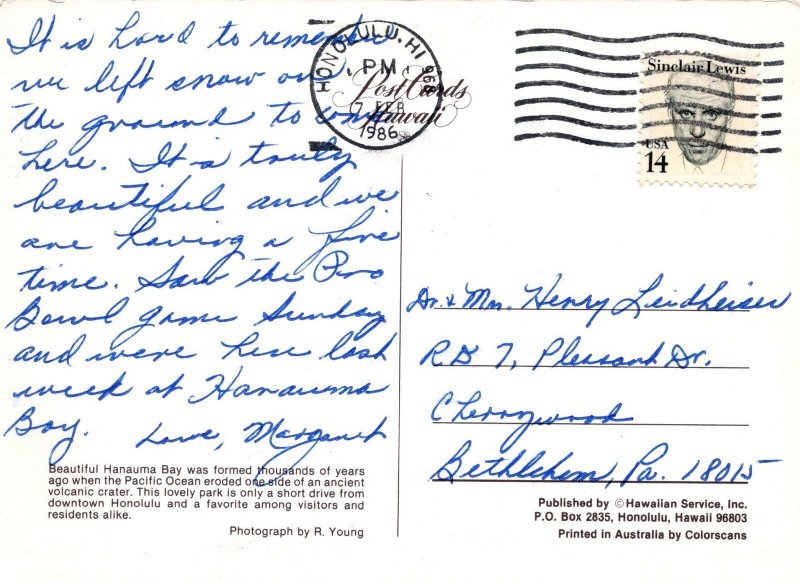 It is hard to remember
we left snow on
the ground to come
here. It is truly
beautiful and we
are having a fine
time. Saw the Pro
Bowl game Sunday
and were here last
week at Hanauma
Bay. Love, Margaret
Beautiful Hanauma Bay was formed thousands of years
ago when the Pacific Ocean eroded one side of an ancient
volcanic crater. This lovely park is only a short drive from
downtown Honolulu and a favorite among visitors and
residents alike.
Photograph by R. Young
HONOLULU, HI 968
PM
7 FEB
1986
Post Cards
Hawaii
Sinclair Lewis
USA
14
Dr. & Mrs. Henry Leidheiser
RD 7, Pleasant Dr.
Cherrywood
Bethlehem, Pa. 18015
Published by © Hawaiian Service, Inc.
P.O. Box 2835, Honolulu, Hawaii 96803
Printed in Australia by Colorscans